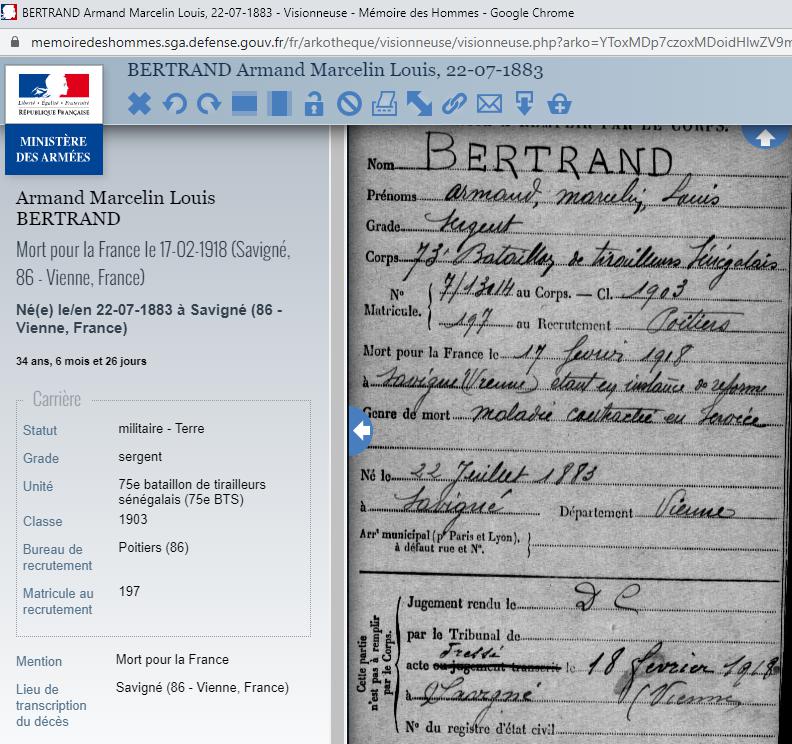 BERTRAND Armand Marcelin Louis, 22-07-1883 - Visionneuse - Mémoire des Hommes - Google Chrome
memoiredeshommes.sga.defense.gouv.fr/fr/arkotheque/visionneuse/visionneuse.php?arko=YToxMDp7czoxMDoidHlwZV9m
BERTRAND Armand Marcelin Louis, 22-07-1883
Liberté • Égalité • Fraternité
RÉPUBLIQUE FRANÇAISE
MINISTÈRE
DES ARMÉES
Armand Marcelin Louis
BERTRAND
Mort pour la France le 17-02-1918 (Savigné,
86 - Vienne, France)
Né(e) le/en 22-07-1883 à Savigné (86 -
Vienne, France)
34 ans, 6 mois et 26 jours
Carrière
Statut militaire - Terre
Grade sergent
Unité 75e bataillon de tirailleurs
sénégalais (75e BTS)
Classe 1903
Bureau de
recrutement Poitiers (86)
Matricule au
recrutement 197
Mention Mort pour la France
Lieu de
transcription
du décès Savigné (86 - Vienne, France)
REMPLIR PAR LE CORPS.
Nom BERTRAND
Prénoms armand, marcelin, Louis
Grade Sergent
Corps 73e Bataillon de tirailleurs Sénégalais
No 7/13014 au Corps. — Cl. 1903
Matricule. 197 au Recrutement Poitiers
Mort pour la France le 17 février 1918
à Savigné (Vienne) étant en instance de reforme
Genre de mort maladie contractée en Service
Né le 22 Juillet 1883
à Savigné Département Vienne
Arrt municipal (pr Paris et Lyon),
à défaut rue et No.
Cette partie
n'est pas à remplir
par le Corps.
Jugement rendu le D C
par le Tribunal de
acte ou jugement transcrit le 18 fevrier 1918
à Savigné (Vienne)
No du registre d'état civil